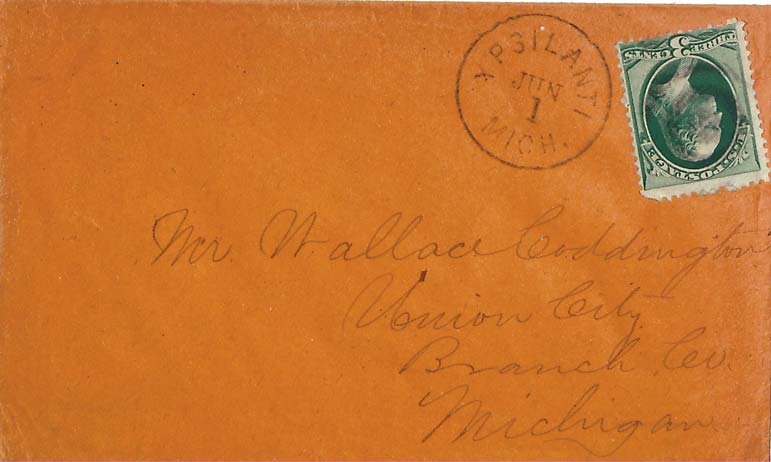 YPSILANTI
JUN
1
MICH.
U.S. POSTAGE
3
Mr. Wallace Coddington
Union City
Branch Co.
Michigan